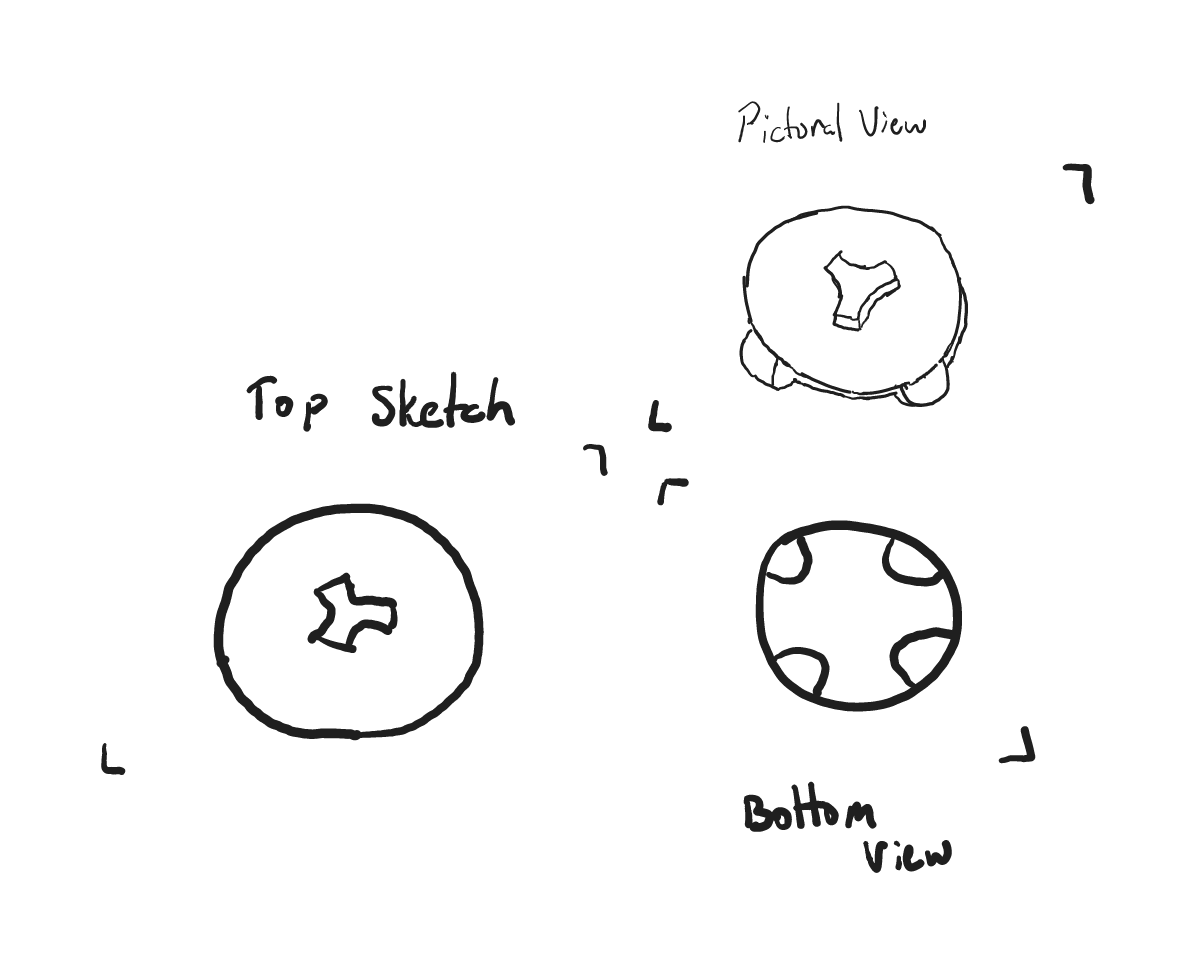 Pictoral View
Top Sketch
Bottom
View